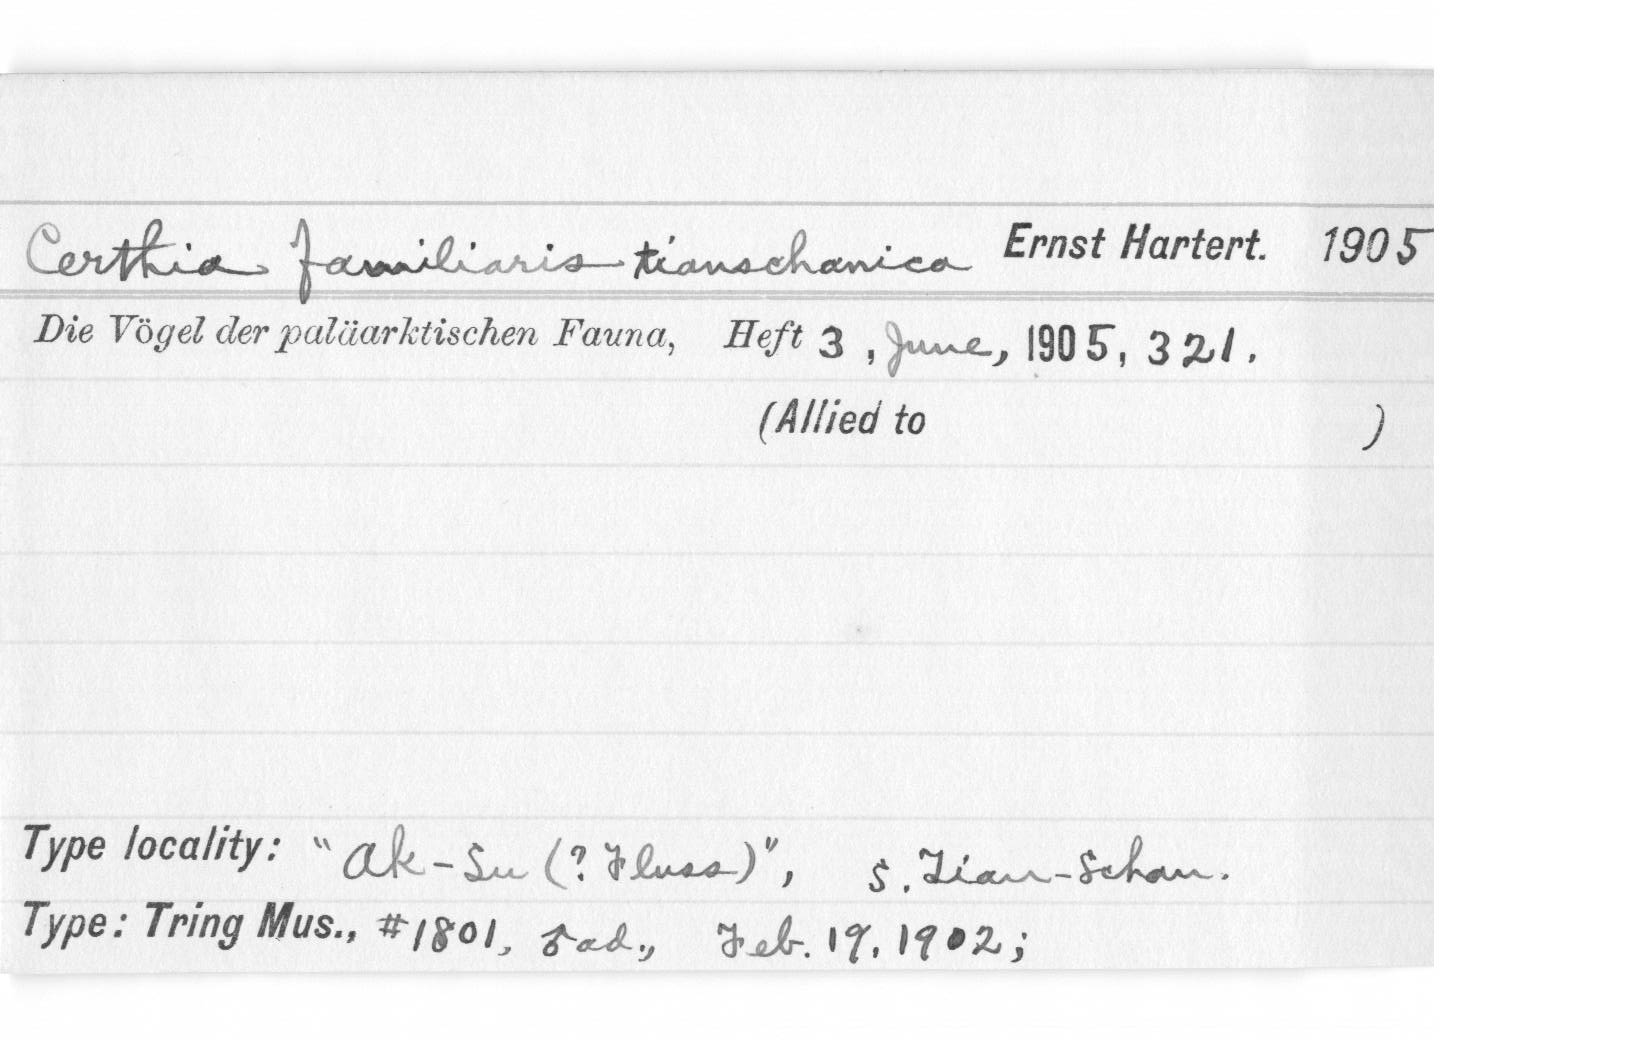 Certhia familiaris tianschanica Ernst Hartert. 1905
Die Vögel der paläarktischen Fauna, Heft 3, June, 1905, 321.
(Allied to )
Type locality: "Ak-Su (? Fluss)", S. Tian-Schan.
Type: Tring Mus., #1801, ♂ ad., Feb. 19, 1902;